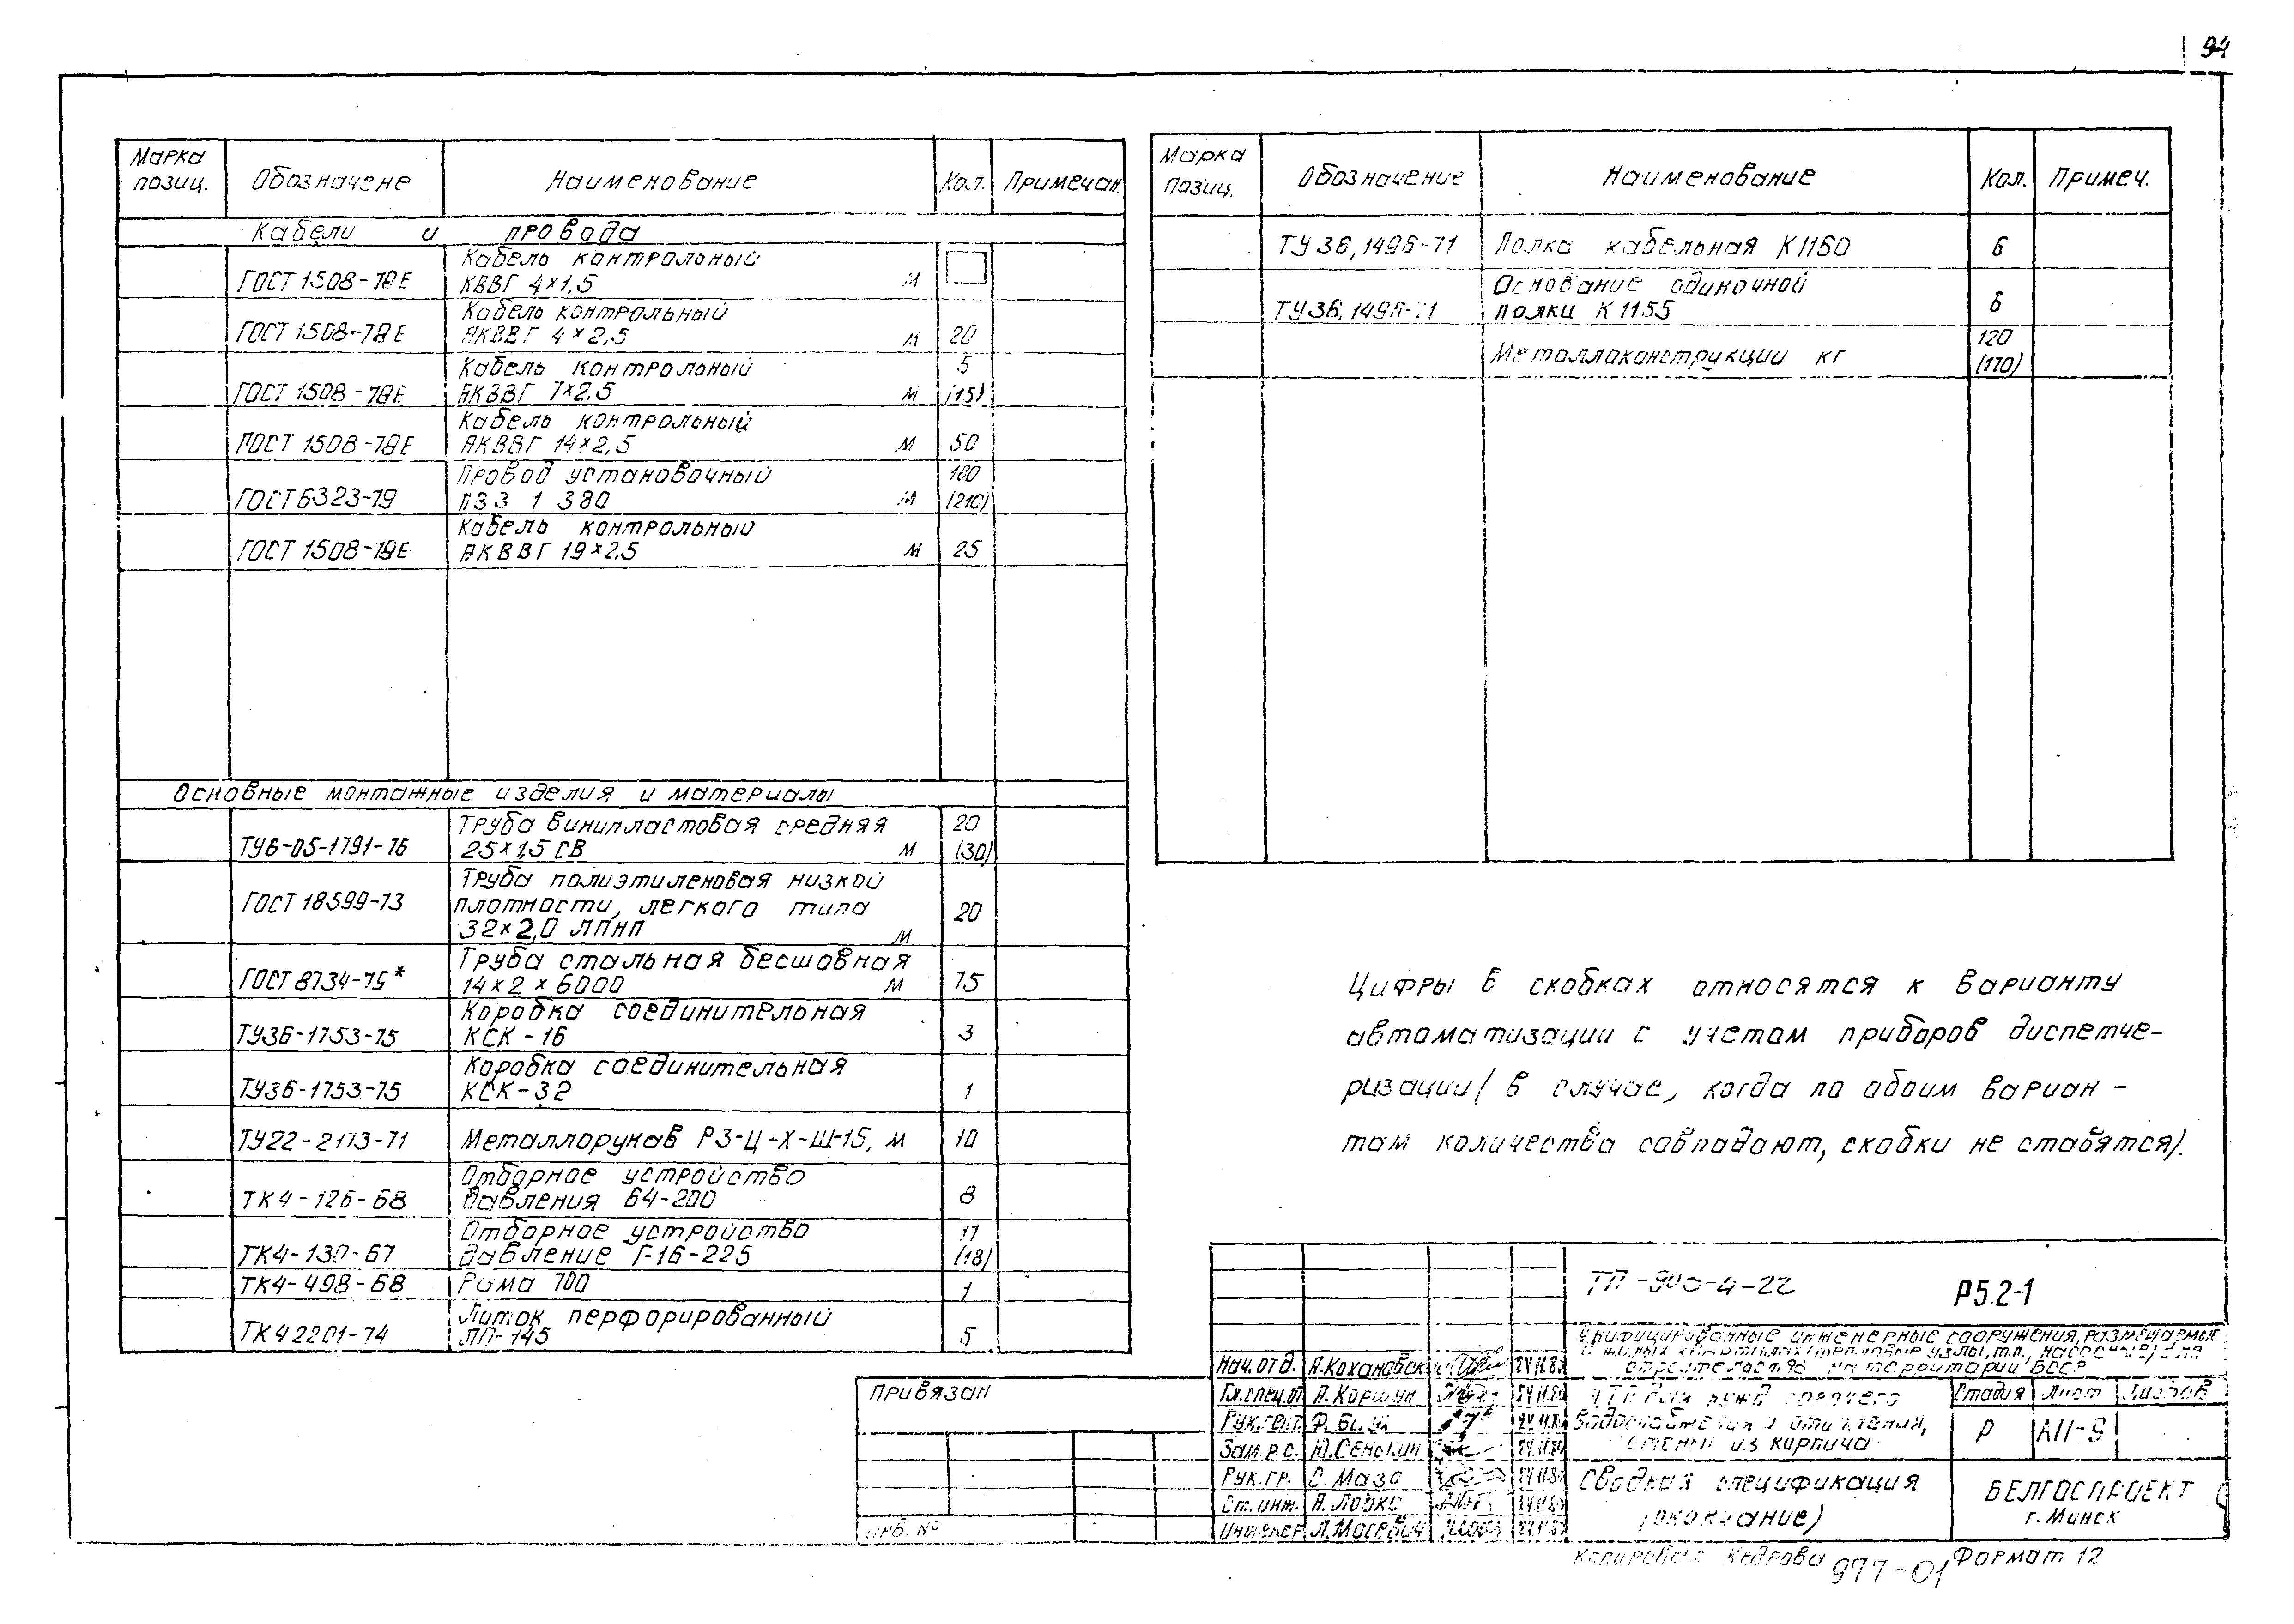 94
Марка позиц. Обозначене Наименование Кол. Примечан.
Кабели и провода
Кабель контрольный
ГОСТ 1508-78Е КВВГ 4×1,5 м
Кабель контрольный
ГОСТ 1508-78Е АКВВГ 4×2,5 м 20
Кабель контрольный 5
ГОСТ 1508-78Е АКВВГ 7×2,5 м (15)
Кабель контрольный
ГОСТ 1508-78Е АКВВГ 14×2,5 м 50
Провод установочный 180
ГОСТ 6323-79 ПВ3 1 380 м (210)
Кабель контрольный
ГОСТ 1508-78Е АКВВГ 19×2,5 м 25
Основные монтажные изделия и материалы
Труба винипластовая средняя 20
ТУ6-05-1791-76 25×1,5 СВ м (30)
Труба полиэтиленовая низкой
ГОСТ 18599-73 плотности, легкого типа 20
32×2,0 ЛПНП м
Труба стальная бесшовная
ГОСТ 8734-75* 14×2×6000 м 75
Коробка соединительная
ТУ36-1753-75 КСК-16 3
Коробка соединительная
ТУ36-1753-75 КСК-32 1
ТУ22-2173-71 Металлорукав РЗ-Ц-Х-Ш-15, м 10
Отборное устройство
ТК4-126-68 давления 64-200 8
Отборное устройство 17
ТК4-130-67 давление Г-16-225 (18)
ТК4-498-68 Рама 700 1
Литок перфорированный
ТК4 2201-74 ЛП-145 5
Марка позиц. Обозначение Наименование Кол. Примеч.
ТУ36,1496-71 Полка кабельная К1160 6
Основание одиночной
ТУ36,1496-71 полки К1155 6
120
Металлоконструкции кг (170)
Цифры в скобках относятся к варианту
автоматизации с учетом приборов диспетче-
ризации/ в случае, когда по обоим вариан-
там количества совпадают, скобки не ставятся).
ТП-903-4-22 Р5.2-1
Унифицированные инженерные сооружения, размещаемые
в жилых кварталах (тепловые узлы, т.п., насосные) для
строительства на территории БССР
Нач. отд. А. Кохановск
Гл. спец. от А. Коршун
Рук.
Зам. р.с. Ю. Сенокин
Рук. гр. С. Маза
Ст. инж. А. Лойко
Инженер Л. Масевич
ЦТП для нужд горячего
водоснабжения и отопления,
стены из кирпича
Стадия Лист Листов
Р АП-9
Сводная спецификация
(окончание)
БЕЛГОСПРОЕКТ
г. Минск
Привязан
Инв. №
Копировал Кедрова 977-01 Формат 12